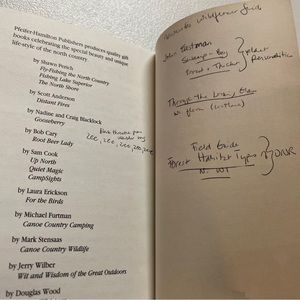 Pfeifer-Hamilton Publishers produces quality gift
books celebrating the special beauty and unique
life-style of the north country.
by Shawn Perich
Fly-Fishing the North Country
Fishing Lake Superior
The North Shore
by Scott Anderson
Distant Fires
by Nadine and Craig Blacklock
Gooseberry
by Bob Cary
Root Beer Lady
by Sam Cook
Up North
Quiet Magic
CampSights
by Laura Erickson
For the Birds
by Michael Furtman
Canoe Country Camping
by Mark Stensaas
Canoe Country Wildlife
by Jerry Wilber
Wit and Wisdom of the Great Outdoors
by Douglas Wood
zee, zee, zee, zoo, zee
John Eastman
Swamp + Bog
Forest + Thicket
Field Guide
Forest Habitat Types
N. WI
DNR